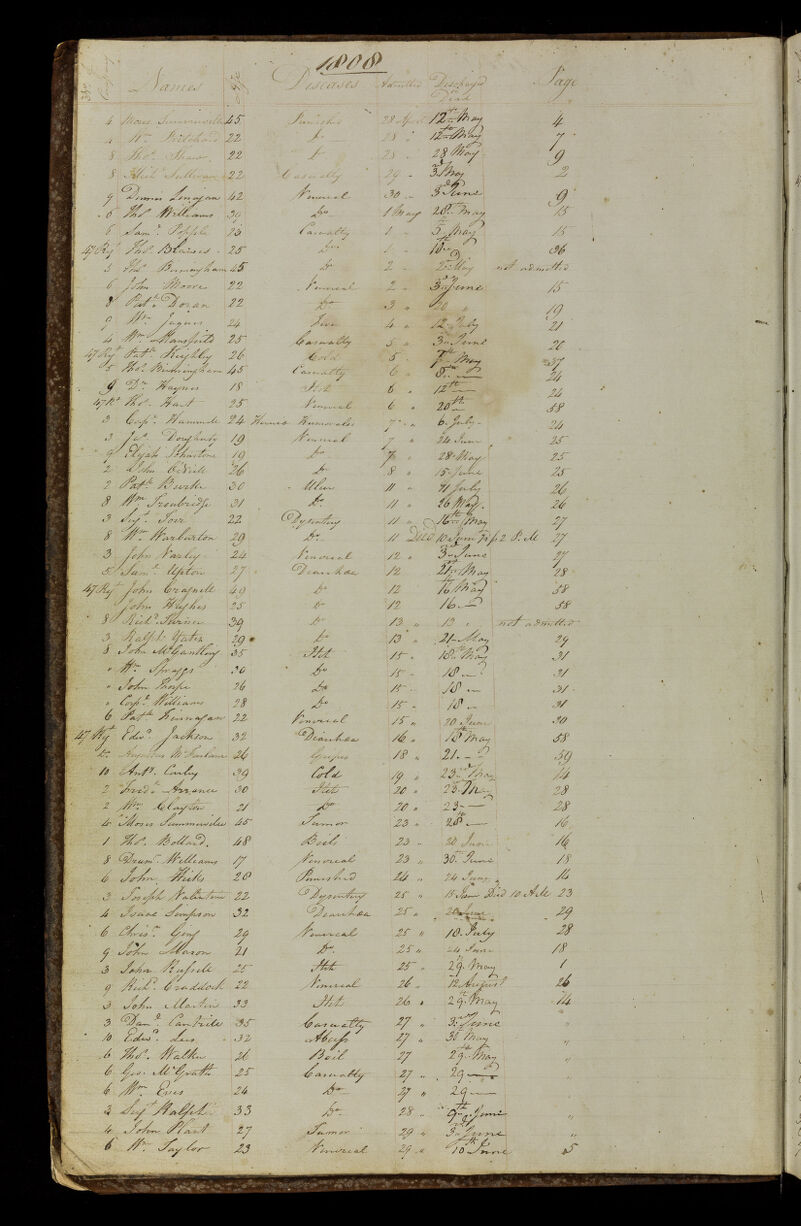 1808
Company Names Age Diseases Admitted Discharged Dead Page
4 Moses Summerville 45 Punished 28 April 12th May 4
4 Wm Pritchard 22 Do 28 " 12th May 7
8 Thos Shaw 22 Do 28 " 28 May 9
8 Sullivan 22 Casualty 29 " 3d May 2
9 Dennis 42 Venereal 30 " 3d June 9
6 Thos Williams 39 Do 1 May 28th May 15
6 Saml Popple 23 Casualty 1 " 5th May 15
47 Regt Thos 25 Do 1 " 10th 36
5 Thos Birmingham 45 Do 2 " 2d May not admitted
6 John Moore 22 Venereal 2 " 3d June 15
8 Patk Doran 22 Do 3 " 20 " 19
9 Wm 24 4 " 12 July 21
4 Wm Mansfield 25 Casualty 5 " 3d June 20
47 Regt Patk Keighly 26 Cold 5 " 7th May 37
5 Thos Birmingham 45 Casualty 6 " 8th — 24
9 Dr Haynes 18 Itch 6 " 12th — 24
47 Rt Thos Hart 25 Venereal 6 " 20th — 58
3 Corpl 24 Humoralis 7 " 6 July 24
3 Jas Dougherty 19 Venereal 7 " 24 June 25
9 Elijah Johnstone 19 Do 7 " 28 May 25
2 John 26 Do 8 " 15 June 25
2 Patk Burke 30 Ulcer 11 " 21 July 26
8 Wm Trowbridge 31 Do 11 " 26 May 26
3 Serjt 22 Dysentery 11 " 16th May 27
8 Wm Warburton 29 Do 11 Died 10 June 2 P.M 27
3 John Varley 24 Venereal 12 " 3d June 27
5 Saml Upton 27 Diarrhœa 12 21st May 28
47 Regt John Cragnell 49 Do 12 16 May 58
John Hughes 25 Do 12 16 — 58
8 Richd Turner 39 Do 13 " 13 " not admitted
3 Ralph Yates 29 Do 13 " 21 May 29
8 John McGantley 35 Itch 15 " 18th May 31
" Wm Spraggs 30 Do 15 " 18 — 31
" John Thorpe 26 Do 15 " 18 — 31
" Corpl Williams 28 Do 15 " 18 — 31
6 Patk Finnagan 22 Venereal 15 " 20 June 30
47 Regt Edwd Jackson 32 Diarrhœa 16 " 18th May 58
Do McFarlane 26 18 " 21 — 59
10 Anty Curley 39 Cold 19 " 23d May 14
2 Fredk 30 Itch 20 " 23 May 28
2 Wm Clayton 21 Do 20 " 23 — 28
4 Moses Summerville 45 Tumor 23 " 28th — 16
1 Thos Bollard 48 Boils 23 " 20 June 16
8 Drumr Williams 17 Venereal 23 " 30th June 18
6 John Hicks 28 Punished 24 " 24 June 14
3 Joseph 22 Dysentery 25 " 15 June Died 10 A.M 23
4 Isaac Simpson 32 Diarrhœa 25 " 20 June 29
6 Chrisr Ging 29 Venereal 25 " 10 July 28
9 John Mason 21 Do 25 " 24 June 18
3 John Russell 25 Itch 25 " 29 May 1
9 Richd Craddock 22 Venereal 26 " 12 August 26
3 John Martin 33 Itch 26 " 29th May 14
3 Danl Cantrill 35 Casualty 27 " 3d June "
10 Edwd Lees 32 Abcess 27 " 30 May "
6 Thos Walker 26 Boil 27 29th May "
6 Geo McGrath 25 Casualty 27 " 29 —
6 Wm Eves 24 Do 27 " 29 —
2 Serjt 33 Do 28 " 9th June "
4 John Plant 27 Tumor 29 " 3d June "
6 Wm Taylor 23 Venereal 29 " 10th June 5